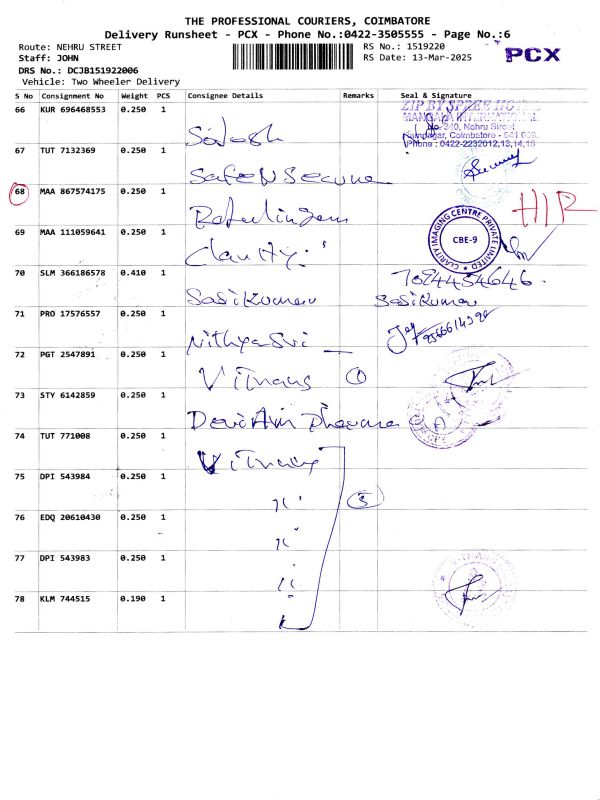 THE PROFESSIONAL COURIERS, COIMBATORE
Delivery Runsheet - PCX - Phone No.:0422-3505555 - Page No.:6
Route: NEHRU STREET
RS No.: 1519220
Staff: JOHN
RS Date: 13-Mar-2025
PCX
DRS No.: DCJB151922006
Vehicle: Two Wheeler Delivery
S No Consignment No Weight PCS Consignee Details Remarks Seal & Signature
66 KUR 696468553 0.250 1
MANGALA INTERNATIONAL
No. 340, Nehru Street
Coimbatore - 641 009.
Phone : 0422-2232012,13,14,16
67 TUT 7132369 0.250 1
Safe N Secure
68 MAA 867574175 0.250 1
HIR
69 MAA 111059641 0.250 1
Clarity
CLARITY IMAGING CENTRE PRIVATE LIMITED
CBE-9
70 SLM 366186578 0.410 1
Sasikumar Sasikumar
71 PRO 17576557 0.250 1
Nithyasri
72 PGT 2547891 0.250 1
1
73 STY 6142859 0.250 1
74 TUT 771008 0.250 1
75 DPI 543984 0.250 1
5
76 EDQ 20610430 0.250 1
77 DPI 543983 0.250 1
78 KLM 744515 0.190 1